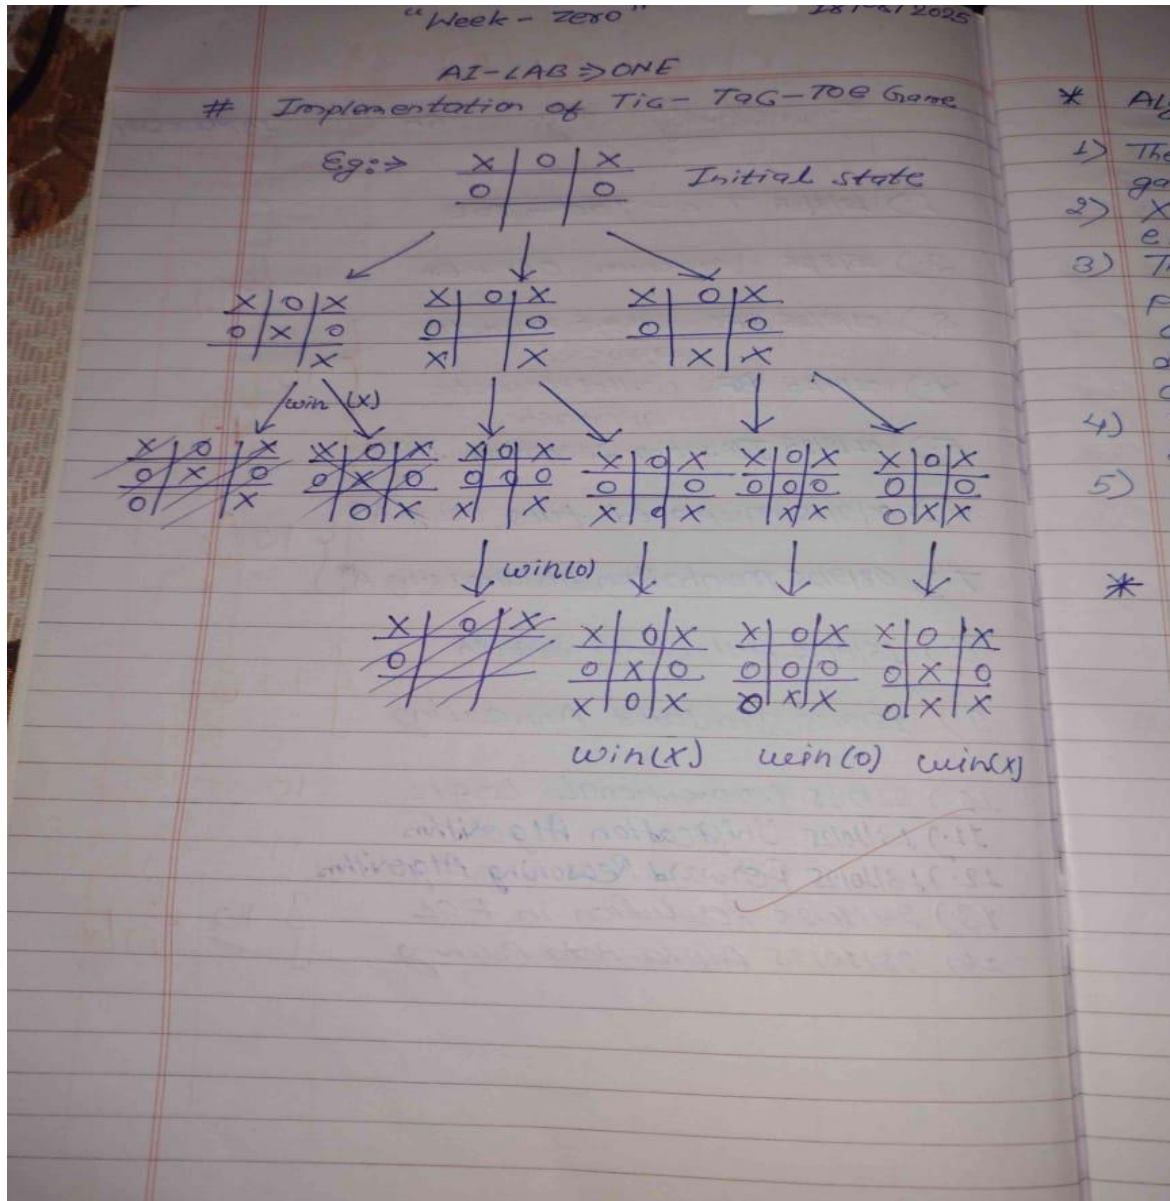 "Week - Zero"
2025
AI-LAB ⇒ ONE
# Implementation of Tic- Tac-Toe Game
Eg:→
X | O | X
O | | O
Initial state
X | O | X X | O | X X | O | X
O | X | O O | | O O | | O
| | X X | | X | X | X
win (X)
X | O | X X | O | X X | O | X X | O | X X | O | X X | O | X
O | X | O O | X | O O | O | O O | | O O | O | O O | | O
O | | X | O | X X | | X X | O | X | X | X O | X | X
win(O)
X | O | X X | O | X X | O | X X | O | X
O | | O | X | O O | O | O O | X | O
X | O | X O | X | X O | X | X
win(X) win(O) win(X)
*
1) The
2) X
e
3) T
4)
5)
*